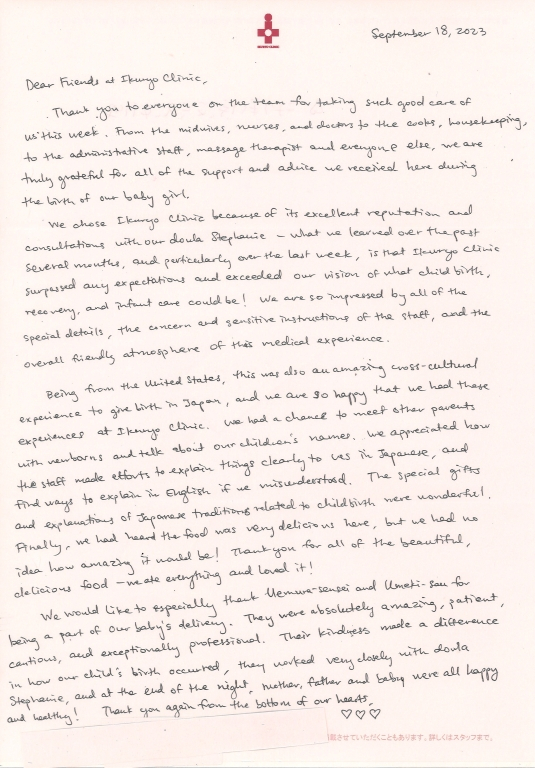 September 18, 2023
Dear Friends at Ikuryo Clinic,
Thank you to everyone on the team for taking such good care of
us this week. From the midwives, nurses, and doctors to the cooks, housekeeping,
to the administrative staff, massage therapist and everyone else, we are
truly grateful for all of the support and advice we received here during
the birth of our baby girl.
We chose Ikuryo Clinic because of its excellent reputation and
consultations with our doula Stephanie – what we learned over the past
several months, and particularly over the last week, is that Ikuryo Clinic
surpassed any expectations and exceeded our vision of what child birth,
recovery, and infant care could be! We are so impressed by all of the
special details, the concern and sensitive instructions of the staff, and the
overall friendly atmosphere of this medical experience.
Being from the United States, this was also an amazing cross-cultural
experience to give birth in Japan, and we are so happy that we had these
experiences at Ikuryo Clinic. We had a chance to meet other parents
with newborns and talk about our children's names. We appreciated how
the staff made efforts to explain things clearly to us in Japanese, and
find ways to explain in English if we misunderstood. The special gifts
and explanations of Japanese traditions related to childbirth were wonderful.
Finally, we had heard the food was very delicious here, but we had no
idea how amazing it would be! Thank you for all of the beautiful,
delicious food – we ate everything and loved it!
We would like to especially thank Uemura-sensei and Umeki-san for
being a part of our baby's delivery. They were absolutely amazing, patient,
cautious, and exceptionally professional. Their kindness made a difference
in how our child's birth occurred, they worked very closely with doula
Stephanie, and at the end of the night, mother, father and baby were all happy
and healthy! Thank you again from the bottom of our hearts,
♡♡♡
載させていただくこともあります。詳しくはスタッフまで。